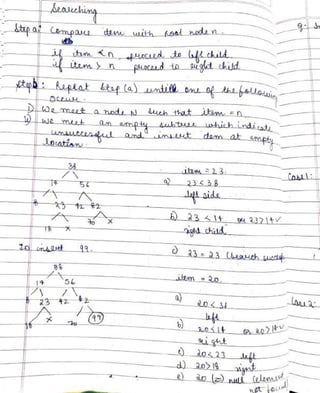 Searching
Step a: Compare item with root node n.
if item < n, proceed to left child
if item > n proceed to right child
Step b: Repeat Step (a) until one of the following
occur.
1) We meet a node N such that item = n.
2) We meet an empty subtree which indicate
unsuccessful and insert item at empty
location.
38
14 56
8 23 42 82
18 x 70 x
item = 23.
a) 23 < 38
left side
b) 23 < 14 or 23 > 14 ✓
right child
c) 23 = 23 (search
To insert 99.
38
14 56
8 23 42 82
18 x 70 (99)
item = 20.
a) 20 < 38
left
b) 20 < 14 or 20 > 14 ✓
right
c) 20 < 23 left
d) 20 > 18 right
e) 20 null (element
not found)
Case 1:
Case 2: